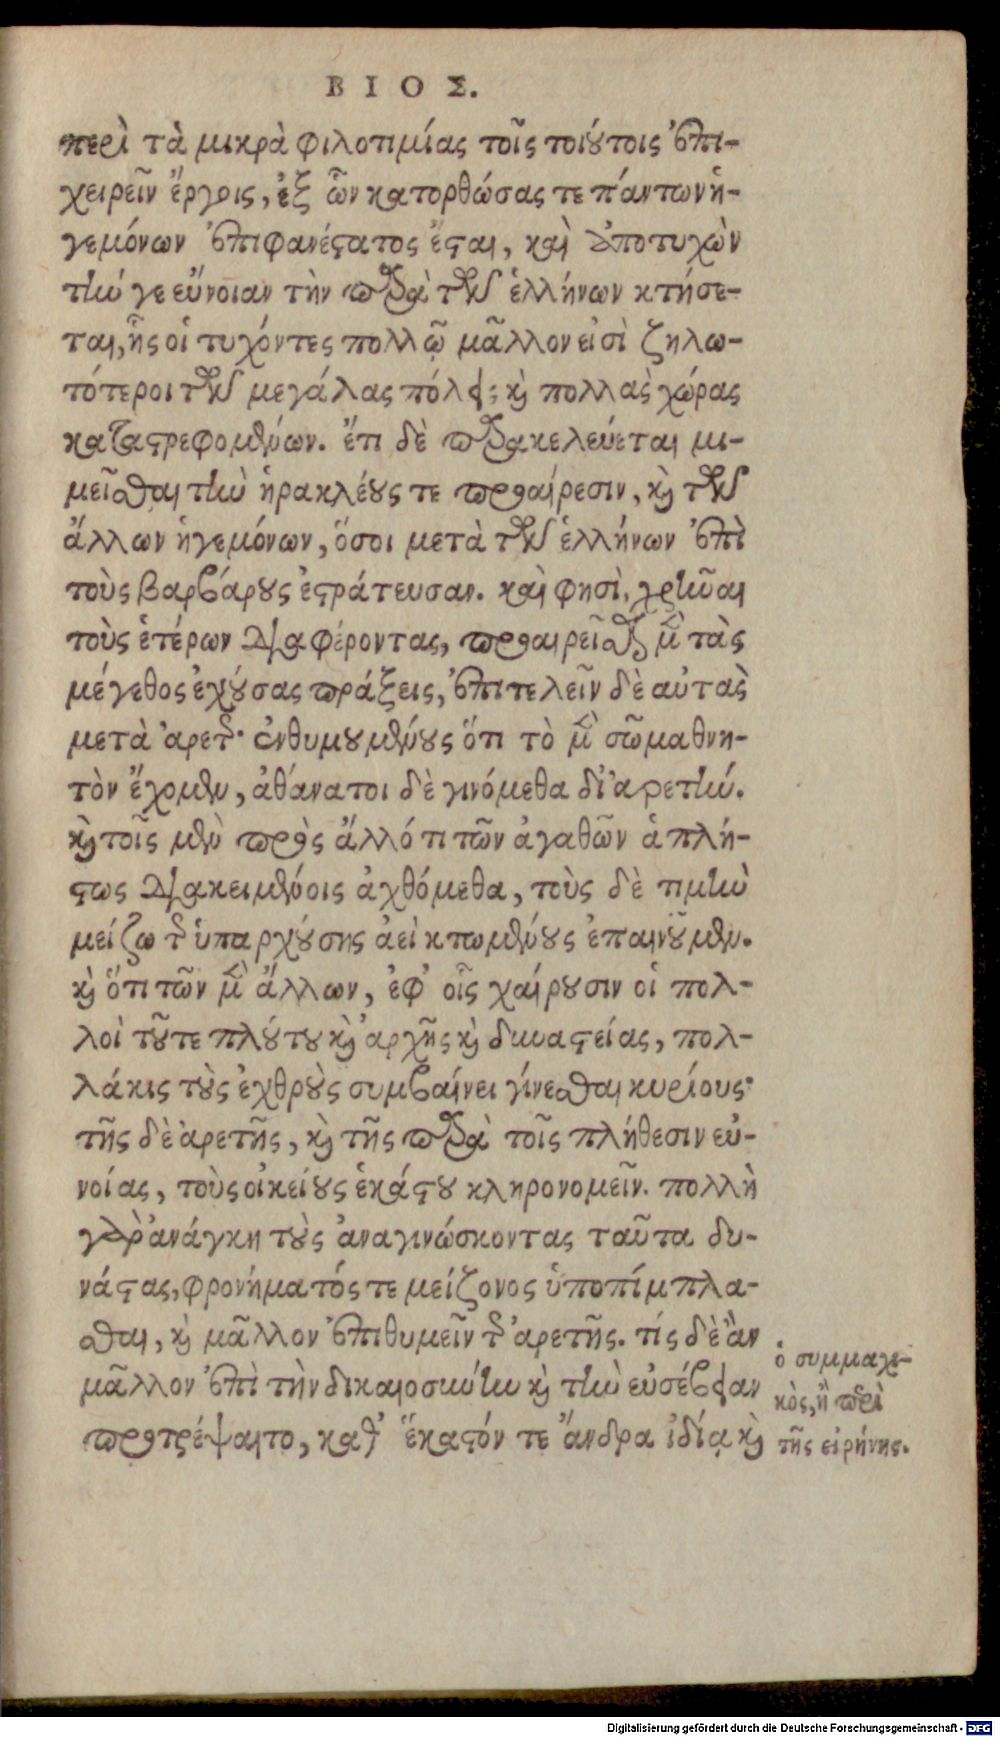 ΒΙΟΣ.
περὶ τὰ μικρὰ φιλοτιμίας τοῖς τοιούτοις ἐπι-
χειρεῖν ἔργοις, ἐξ ὧν κατορθώσας τε πάντων ἡ-
γεμόνων ἐπιφανέστατος ἔσται, καὶ ἀποτυχὼν
τήν γε εὔνοιαν τὴν παρὰ τῶν ἑλλήνων κτήσε-
ται, ἧς οἱ τυχόντες πολλῷ μᾶλλον εἰσὶ ζηλω-
τότεροι τῶν μεγάλας πόλεις καὶ πολλὰς χώρας
καταστρεφομένων. ἔτι δὲ παρακελεύεται μι-
μεῖσθαι τὴν ἡρακλέους τε προαίρεσιν, καὶ τῶν
ἄλλων ἡγεμόνων, ὅσοι μετὰ τῶν ἑλλήνων ἐπὶ
τοὺς βαρβάρους ἐστράτευσαν. καὶ φησὶ, χρῆναι
τοὺς ἑτέρων διαφέροντας, προαιρεῖσθαι μὲν τὰς
μέγεθος ἐχούσας πράξεις, ἐπιτελεῖν δὲ αὐτὰς
μετὰ ἀρετῆς· ἐνθυμουμένους ὅτι τὸ μὲν σῶμα θνη-
τὸν ἔχομεν, ἀθάνατοι δὲ γινόμεθα δι' ἀρετήν.
καὶ τοῖς μὲν πρὸς ἄλλό τι τῶν ἀγαθῶν ἀπλή-
στως διακειμένοις ἀχθόμεθα, τοὺς δὲ τιμὴν
μείζω τῆς ὑπαρχούσης ἀεὶ κτωμένους ἐπαινοῦμεν.
καὶ ὅτι τῶν μὲν ἄλλων, ἐφ' οἷς χαίρουσιν οἱ πολ-
λοὶ τοῦτε πλούτου καὶ ἀρχῆς καὶ δυναστείας, πολ-
λάκις τοὺς ἐχθροὺς συμβαίνει γίνεσθαι κυρίους·
τῆς δὲ ἀρετῆς, καὶ τῆς παρὰ τοῖς πλήθεσιν εὐ-
νοίας, τοὺς οἰκείους ἑκάστου κληρονομεῖν. πολλὴ
γὰρ ἀνάγκη τοὺς ἀναγινώσκοντας ταῦτα δυ-
νάστας, φρονήματός τε μείζονος ὑποπίμπλα-
σθαι, καὶ μᾶλλον ἐπιθυμεῖν τῆς ἀρετῆς. τίς δὲ ἂν
μᾶλλον ἐπὶ τὴν δικαιοσύνην καὶ τὴν εὐσέβειαν
προτρέψαιτο, καθ' ἕκαστόν τε ἄνδρα ἰδίᾳ καὶ
ὁ συμμαχι-
κὸς, ἢ περὶ
τῆς εἰρήνης.
Digitalisierung gefördert durch die Deutsche Forschungsgemeinschaft - DFG